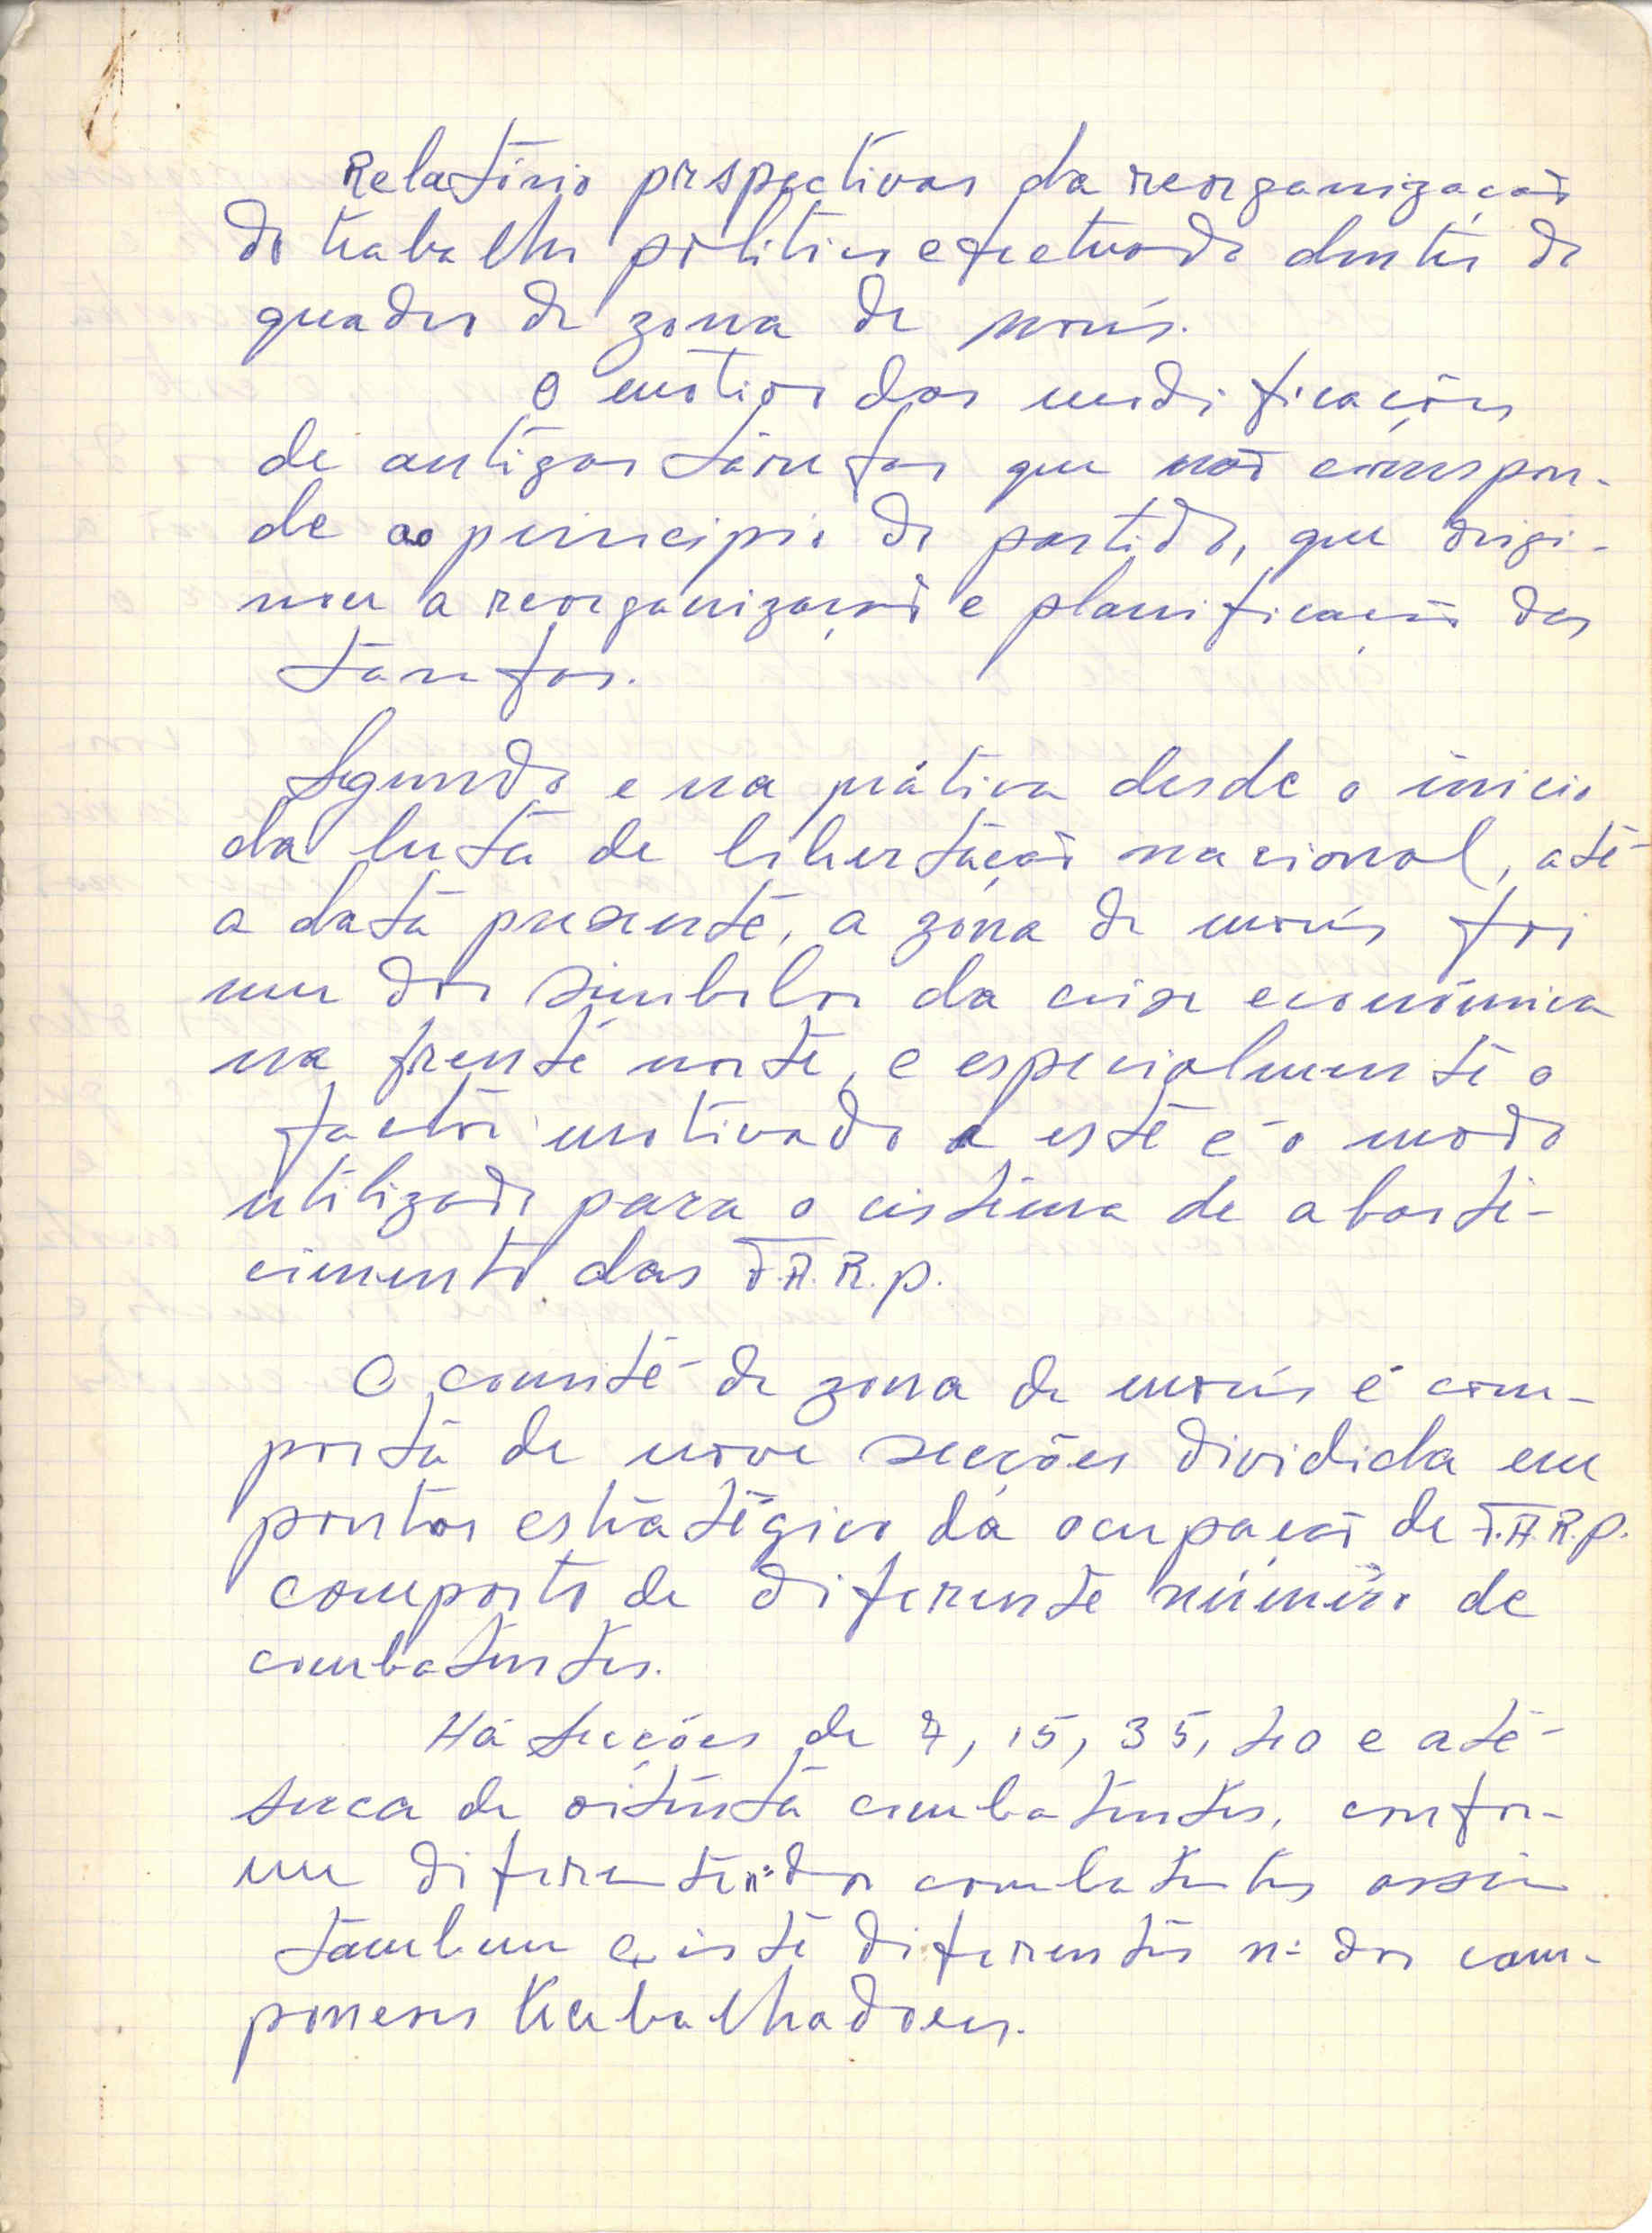 Relatório prspectivas da reorganização
do trabalho politico efectuado dentro do
quadro da zona de morés.
O motivo das modificações
de antigas tárefas que não corrrespon-
de ao principio do partido, que
a reorganização e planificação das
tárefas.
Segundo e na prática desde o início
da luta de libertação nacional, até
a data presente, a zona de morés foi
um dos simbolos da crise económica
na frente norte, e especialmente o
factor motivado a este é o modo
utilizado para o cistema de abaste-
cimento das F.A.R.P.
O comité da zona de morés é com-
posta de nove secções dividida em
pontos estratégico da ocupação de F.A.R.P.
composto de diferente número de
combatentes.
Há secções de 7, 15, 35, 40 e até
serca de oitenta combatentes, confor-
me diferente nº dos combatentes assim
tambem existe diferentes nº dos cam-
poneses trabalhadores.